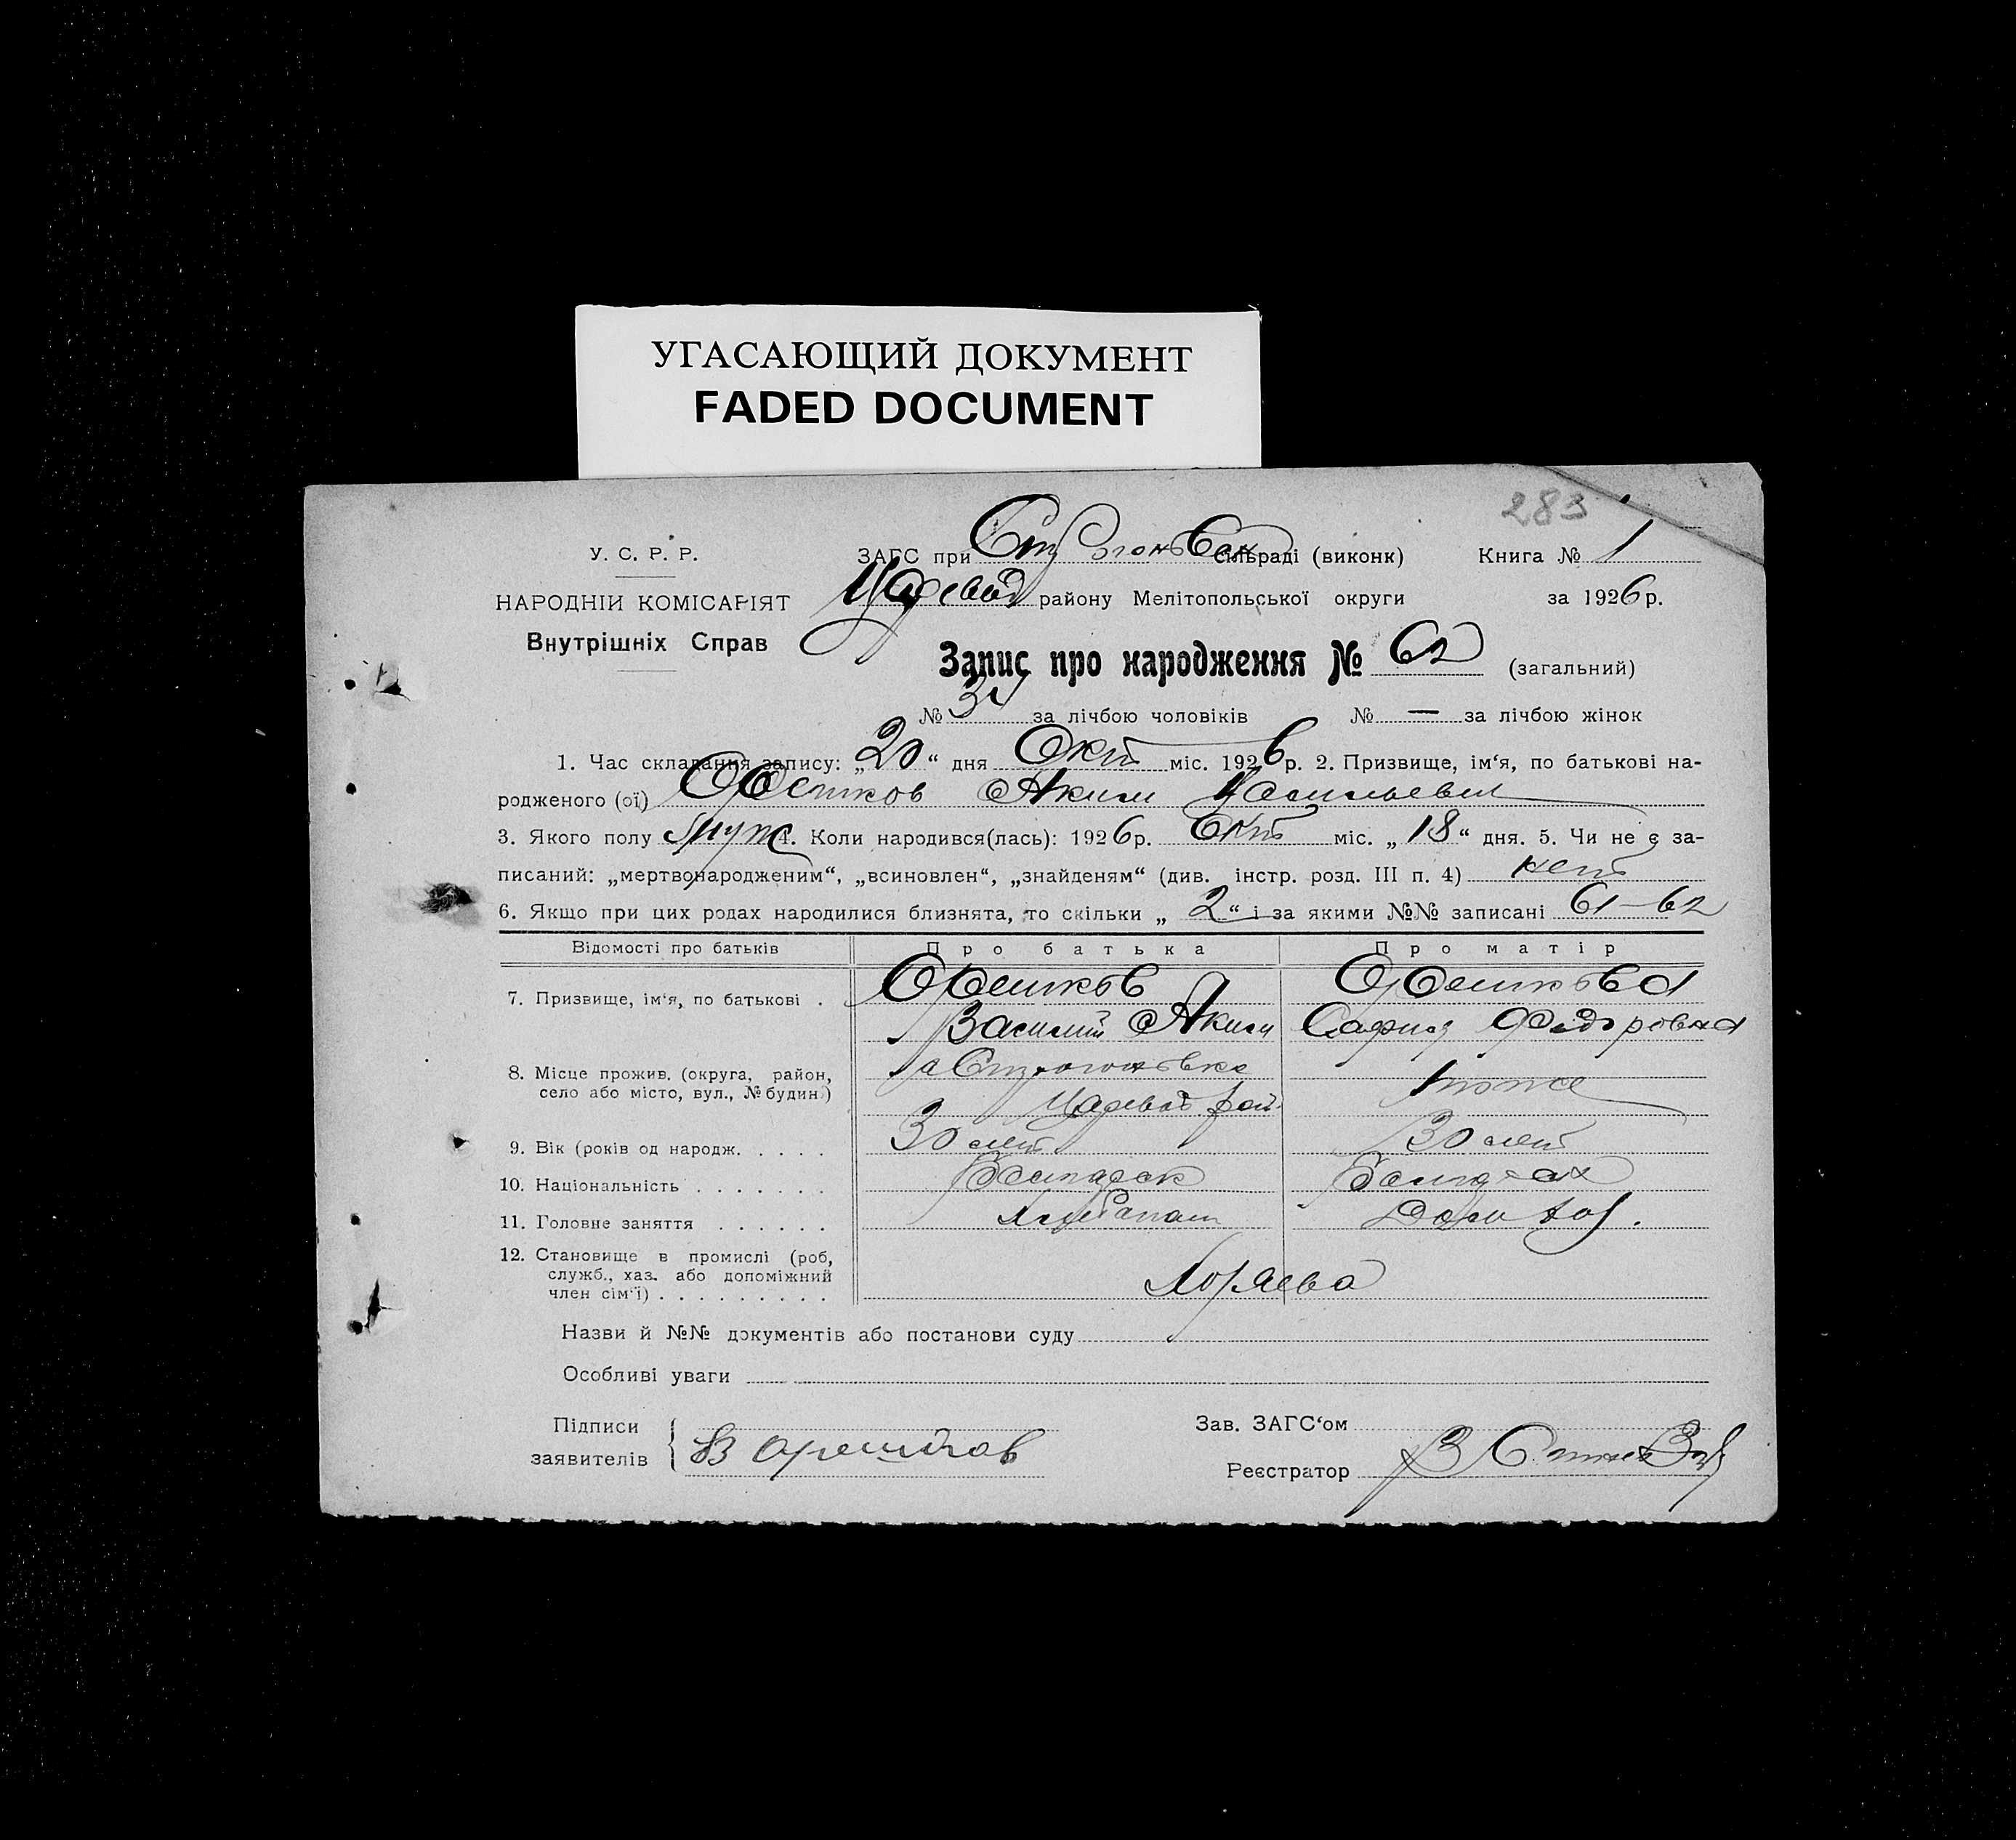 УГАСАЮЩИЙ ДОКУМЕНТ
FADED DOCUMENT
283
У. С. Р. Р.
ЗАГС при Строгоновск сільраді (виконк) Книга № 1
НАРОДНІЙ КОМІСАРІЯТ
Царевод району Мелітопольської округи за 1926 р.
Внутрішніх Справ
Запис про народження № 62 (загальний)
№ за лічбою чоловіків № — за лічбою жінок
1. Час складання запису: „20“ дня Окт міс. 1926 р. 2. Призвище, ім‘я, по батькові на-
родженого (ої) Орешков Аким Васильевич
3. Якого полу муж 4. Коли народився(лась): 1926 р. Окт міс. „18“ дня. 5. Чи не є за-
писаний: „мертвонародженим“, „всиновлен“, „знайденям“ (див. інстр. розд. III п. 4) нет
6. Якщо при цих родах народилися близнята, то скільки „2“ і за якими №№ записані 61–62
Відомості про батьків Про батька Про матір
7. Призвище, ім‘я, по батькові . Орешков Орешкова
Василий Аким София Федоровна
8. Місце прожив. (округа, район, село або місто, вул., № будин.) Строгоновка тоже
Царевод рай.
9. Вік (років од народж. . . . . 30 лет 30 лет
10. Національність . . . . . . .
11. Головне заняття . . . . . . Хлебопаш Дом хоз.
12. Становище в промислі (роб,
служб., хаз. або допоміжний
член сім‘ї) . . . . . . . . . Хозяева
Назви й №№ документів або постанови суду
Особливі уваги
Підписи
заявителів В Орешков
Зав. ЗАГС‘ом
Реєстратор